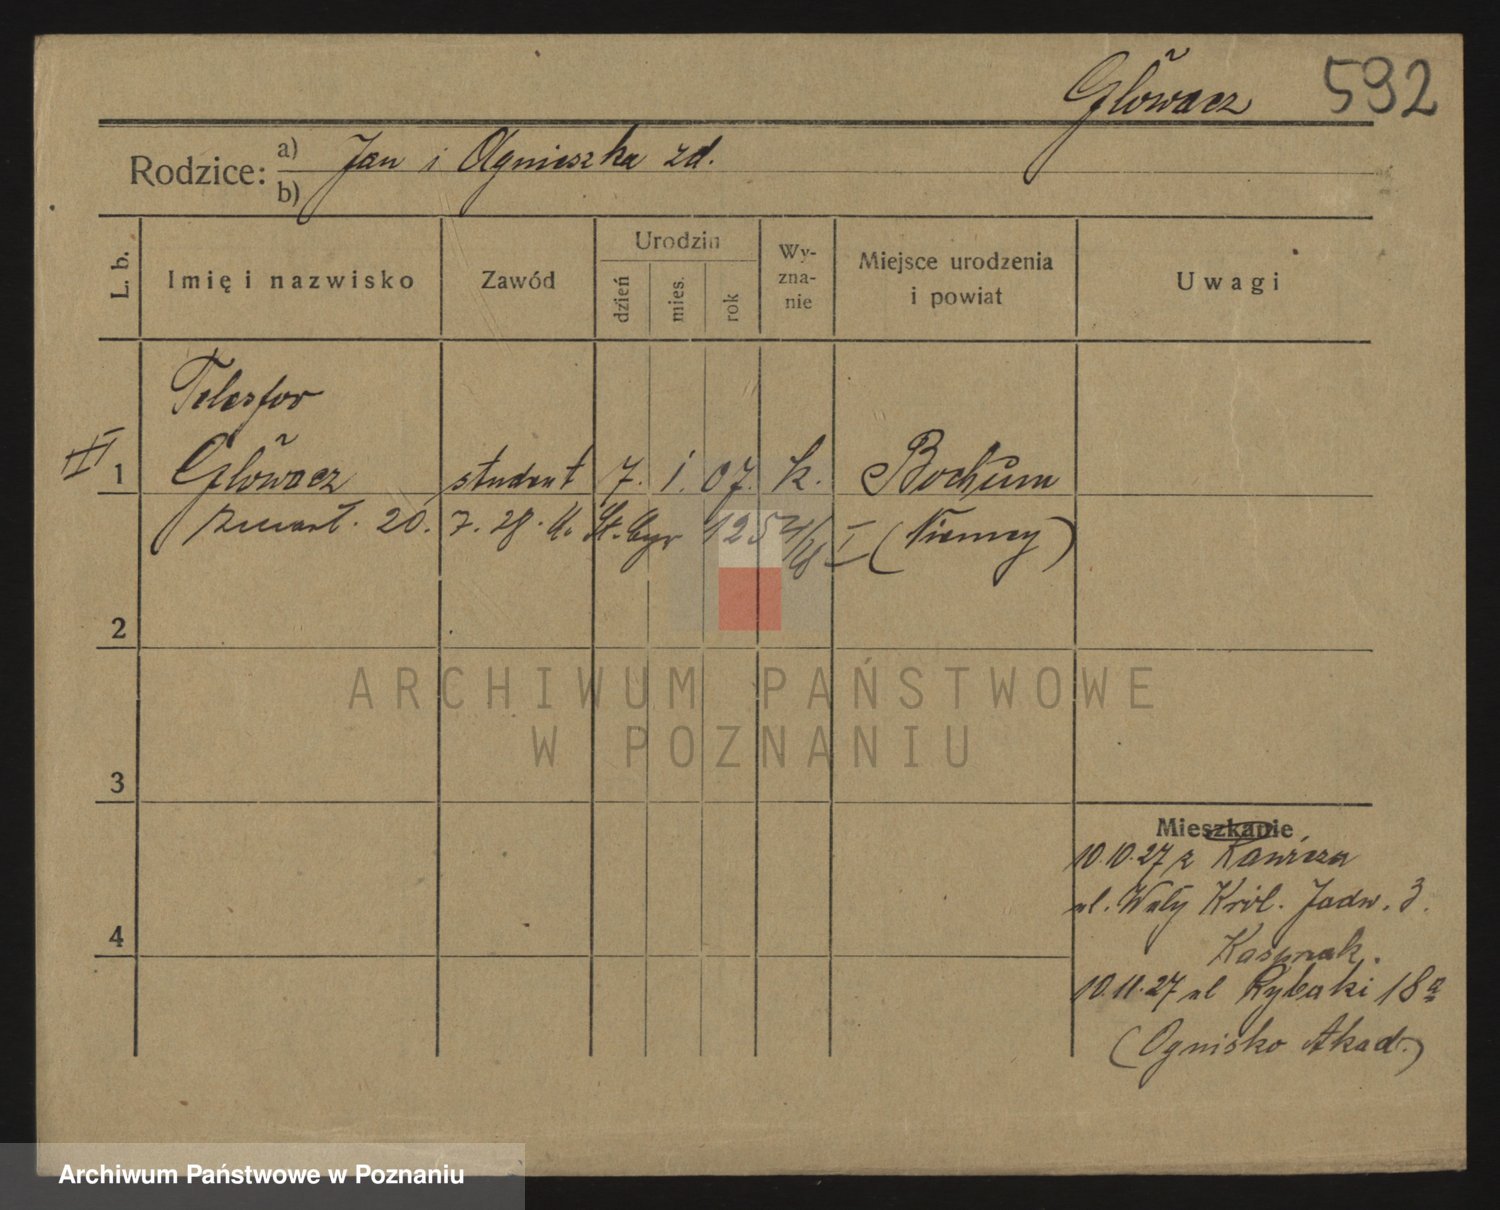 Głowacz 592
Rodzice: a) Jan i Agnieszka zd.
b)
L. b.
Imię i nazwisko
Zawód
Urodzin
dzień
mies.
rok
Wy-
zna-
nie
Miejsce urodzenia
i powiat
Uwagi
Telesfor
II 1 Głowacz student 7. 1. 07. k. Bochum
zmarł. 20. 7. 28. I (Niemcy)
2
3
4
Mieszkanie
10.10.27 z Rawicza
ul. Wały Król. Jadw. 3.
10.11.27 ul Rybaki 18a
(Ognisko Akad.)
ARCHIWUM PAŃSTWOWE
W POZNANIU
Archiwum Państwowe w Poznaniu